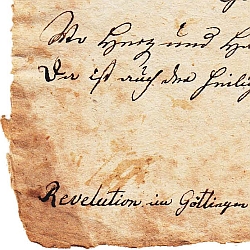 Wo Herz und H
Da ist auch der heilig
Revelution im Göttingen